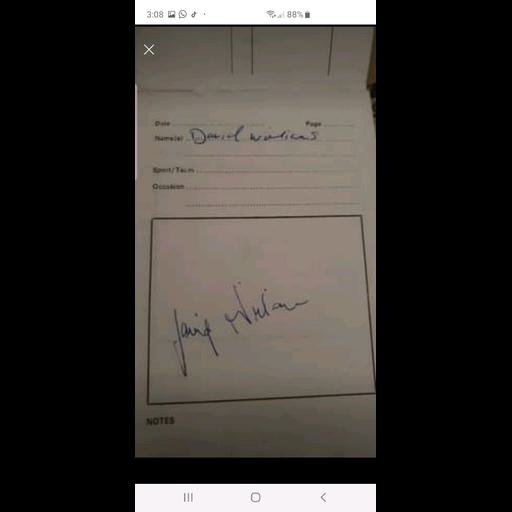 3:08 88%
Date Page
Name(s) David Williams
Sport/Team
Occasion
NOTES